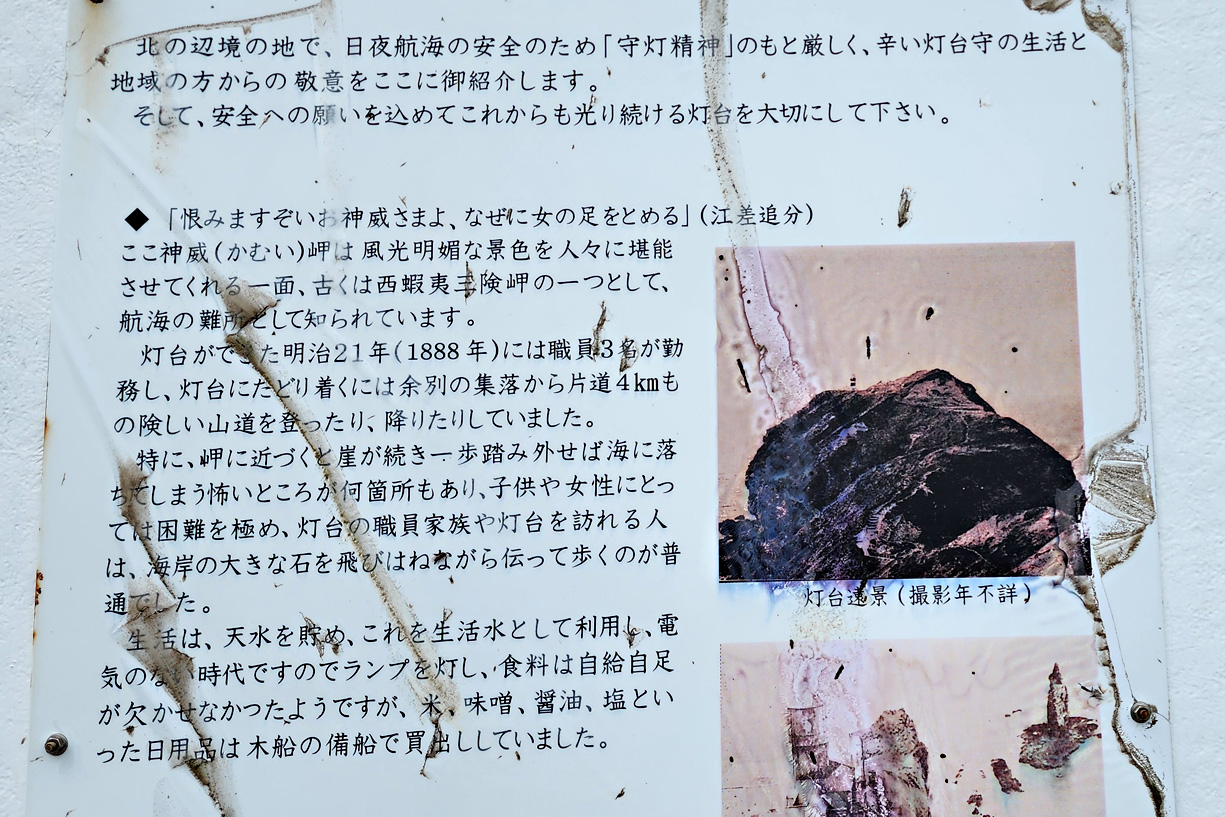 北の辺境の地で、日夜航海の安全のため「守灯精神」のもと厳しく、辛い灯台守の生活と
地域の方からの敬意をここに御紹介します。
そして、安全への願いを込めてこれからも光り続ける灯台を大切にして下さい。
◆「恨みますぞいお神威さまよ、なぜに女の足をとめる」(江差追分)
ここ神威(かむい)岬は風光明媚な景色を人々に堪能
させてくれる一面、古くは西蝦夷三険岬の一つとして、
航海の難所として知られています。
灯台ができた明治21年(1888年)には職員3名が勤
務し、灯台にたどり着くには余別の集落から片道4kmも
の険しい山道を登ったり、降りたりしていました。
特に、岬に近づくと崖が続き一歩踏み外せば海に落
ちてしまう怖いところが何箇所もあり、子供や女性にとっ
ては困難を極め、灯台の職員家族や灯台を訪れる人
は、海岸の大きな石を飛びはねながら伝って歩くのが普
通でした。
生活は、天水を貯め、これを生活水として利用し、電
気のない時代ですのでランプを灯し、食料は自給自足
が欠かせなかったようですが、米、味噌、醤油、塩とい
った日用品は木船の備船で買出ししていました。
灯台遠景(撮影年不詳)